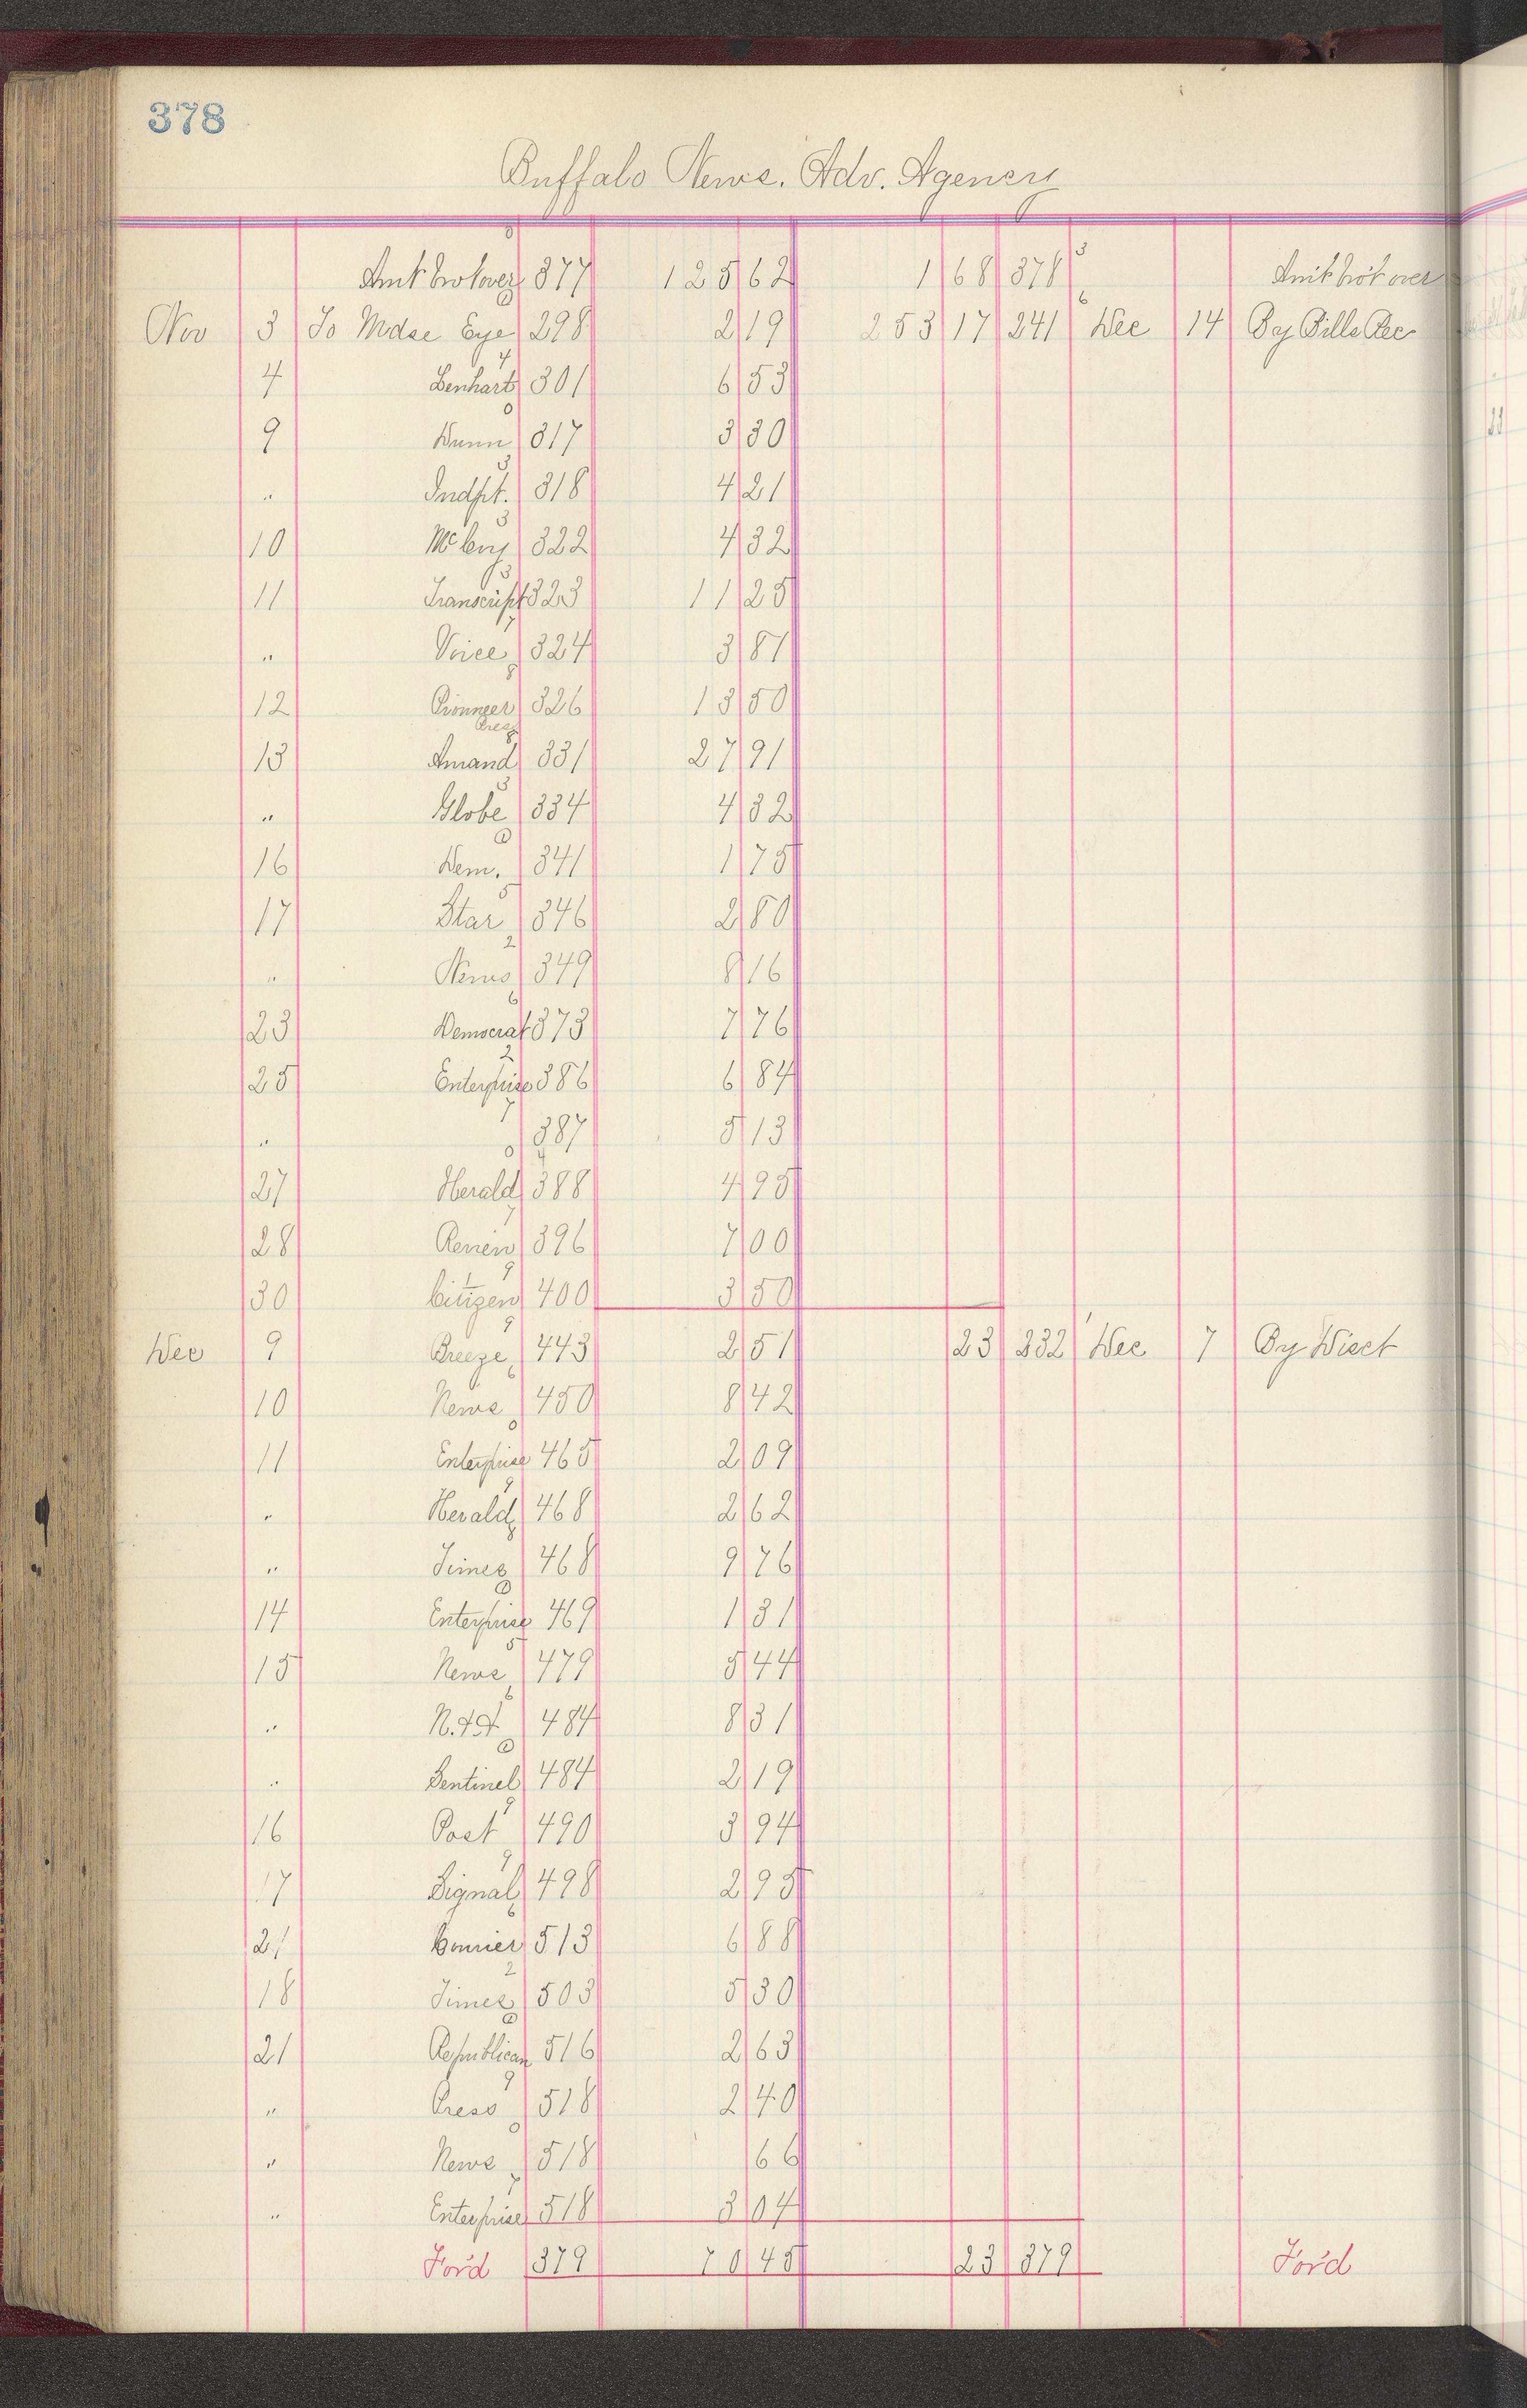 378
Buffalo News. Adv. Agency
Amt brot over 377 125 62 1 68 378 Amt brot over
Nov 3 To Mdse Eye 298 2 19 253 17 241 Dec 14 By Bills Rec
4 Lenhart 301 6 53
9 Dunn 317 3 30
" Indpt. 318 4 21
10 322 4 32
11 Transcript 323 11 25
" Voice 324 3 87
12 Pionneer Press 326 13 50
13 Amand 331 27 91
" Globe 334 4 32
16 Dem. 341 1 75
17 Star 346 2 80
" News 349 8 16
23 Democrat 373 7 76
25 Enterprise 386 6 84
" 387 5 13
27 Herald 388 4 95
28 396 7 00
30 Citizen 400 3 50
Dec 9 Breeze 443 2 51 23 332 Dec 7 By Disct
10 News 450 8 42
11 Enterprise 465 2 09
" Herald 468 2 62
" Times 468 9 76
14 Enterprise 469 1 31
15 News 479 5 44
" 484 8 31
" Sentinel 484 2 19
16 Post 490 3 94
17 Signal 498 2 95
21 Courier 513 6 88
18 Times 503 5 30
21 Republican 516 2 63
" Press 518 2 40
" News 518 66
" Enterprise 518 3 04
For'd 379 70 45 23 379 For'd